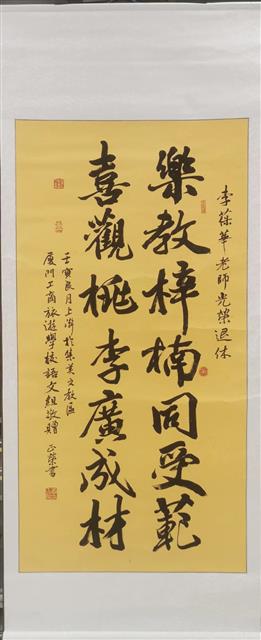 李葆華老師光榮退休
樂教梓楠同受範
喜觀桃李廣成材
壬寅辰月上澣於集美文教區
廈門工商旅遊學校語文組敬贈 正榮書